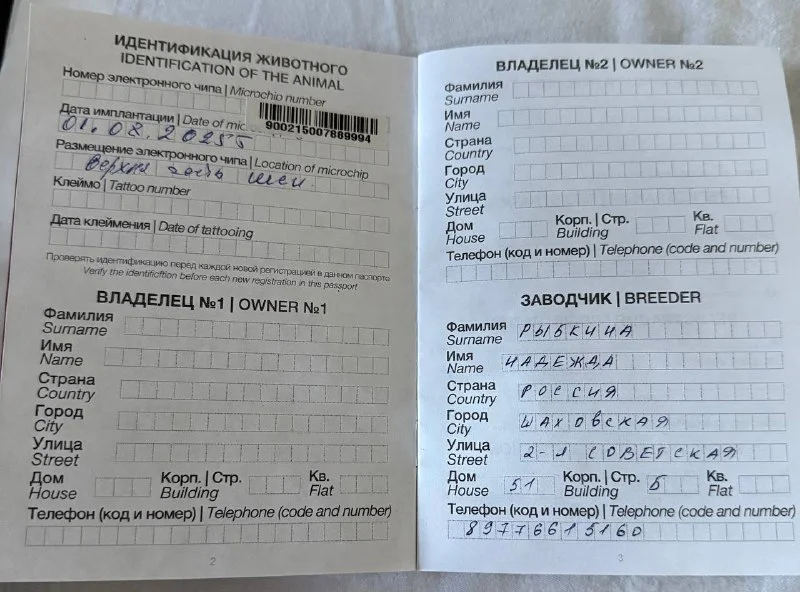 ИДЕНТИФИКАЦИЯ ЖИВОТНОГО
IDENTIFICATION OF THE ANIMAL
Номер электронного чипа | Microchip number
900215007889994
Дата имплантации | Date of mic
01.08.2025г
Размещение электронного чипа | Location of microchip
Верхн часть шеи.
Клеймо | Tattoo number
Дата клеймения | Date of tattooing
Проверять идентификацию перед каждой новой регистрацией в данном паспорте
Verify the identificftion before each new registration in this passport
ВЛАДЕЛЕЦ №1 | OWNER №1
Фамилия
Surname
Имя
Name
Страна
Country
Город
City
Улица
Street
Дом Корп. | Стр. Кв.
House Building Flat
Телефон (код и номер) | Telephone (code and number)
2
ВЛАДЕЛЕЦ №2 | OWNER №2
Фамилия
Surname
Имя
Name
Страна
Country
Город
City
Улица
Street
Дом Корп. | Стр. Кв.
House Building Flat
Телефон (код и номер) | Telephone (code and number)
ЗАВОДЧИК | BREEDER
Фамилия РЫБКИНА
Surname
Имя НАДЕЖДА
Name
Страна РОССИЯ
Country
Город ШАХОВСКАЯ
City
Улица 2-Я СОВЕТСКАЯ
Street
Дом 51 Корп. | Стр. Б Кв.
House Building Flat
Телефон (код и номер) | Telephone (code and number)
89776615160
3